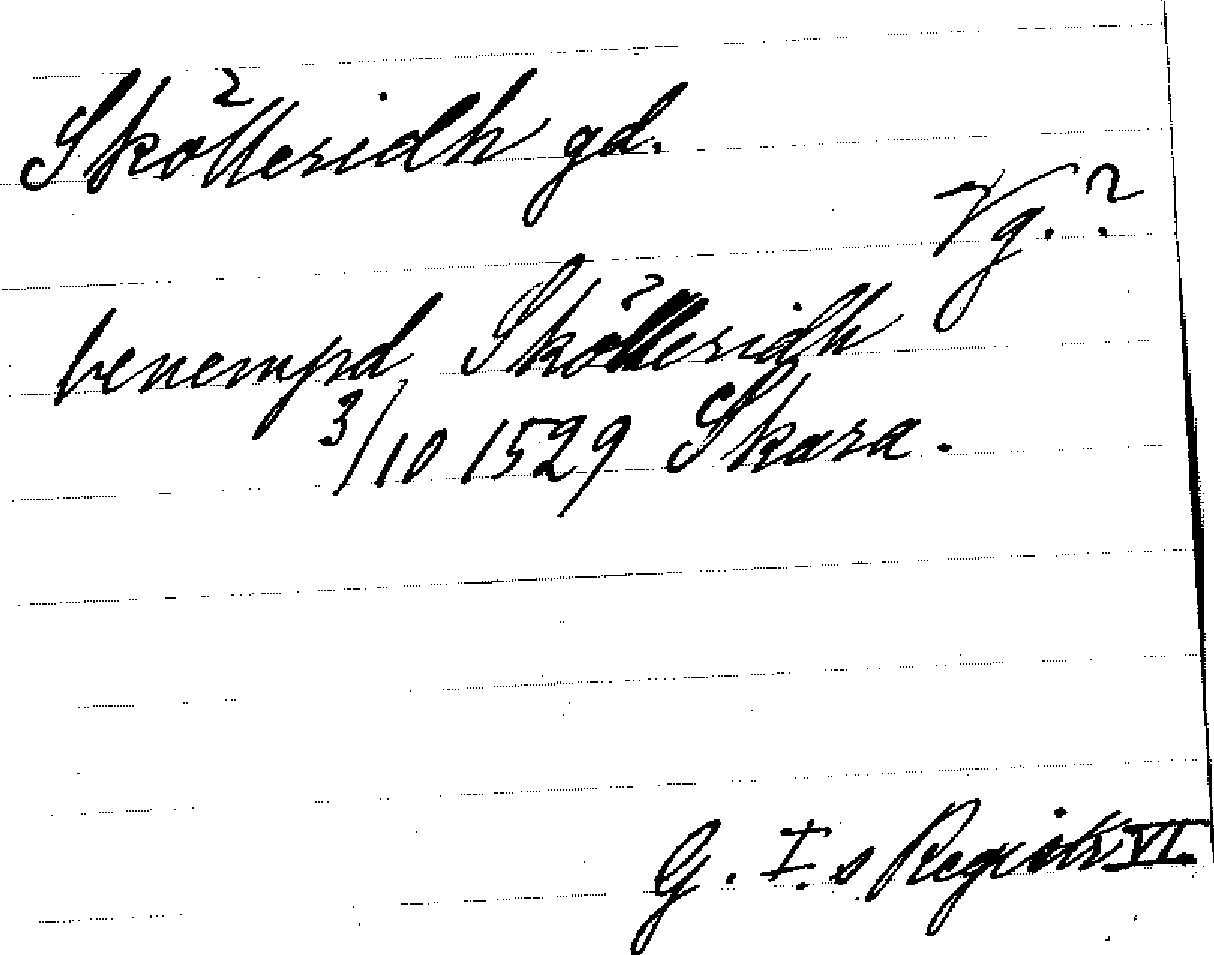 Skölleridh gd.
Vg.?
benempd Skölleridh
3/10 1529 Skara.
G. I.s Registr. VI.